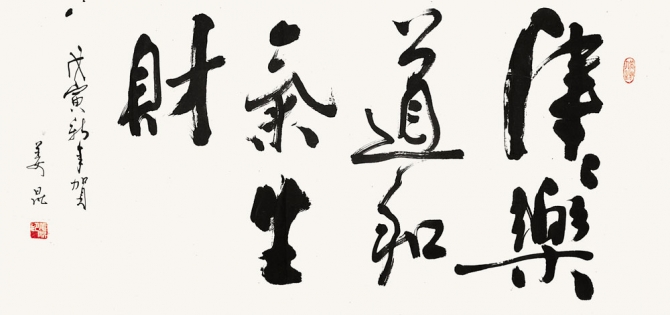 津々樂
道和
氣生
財
戊寅新年賀
姜昆